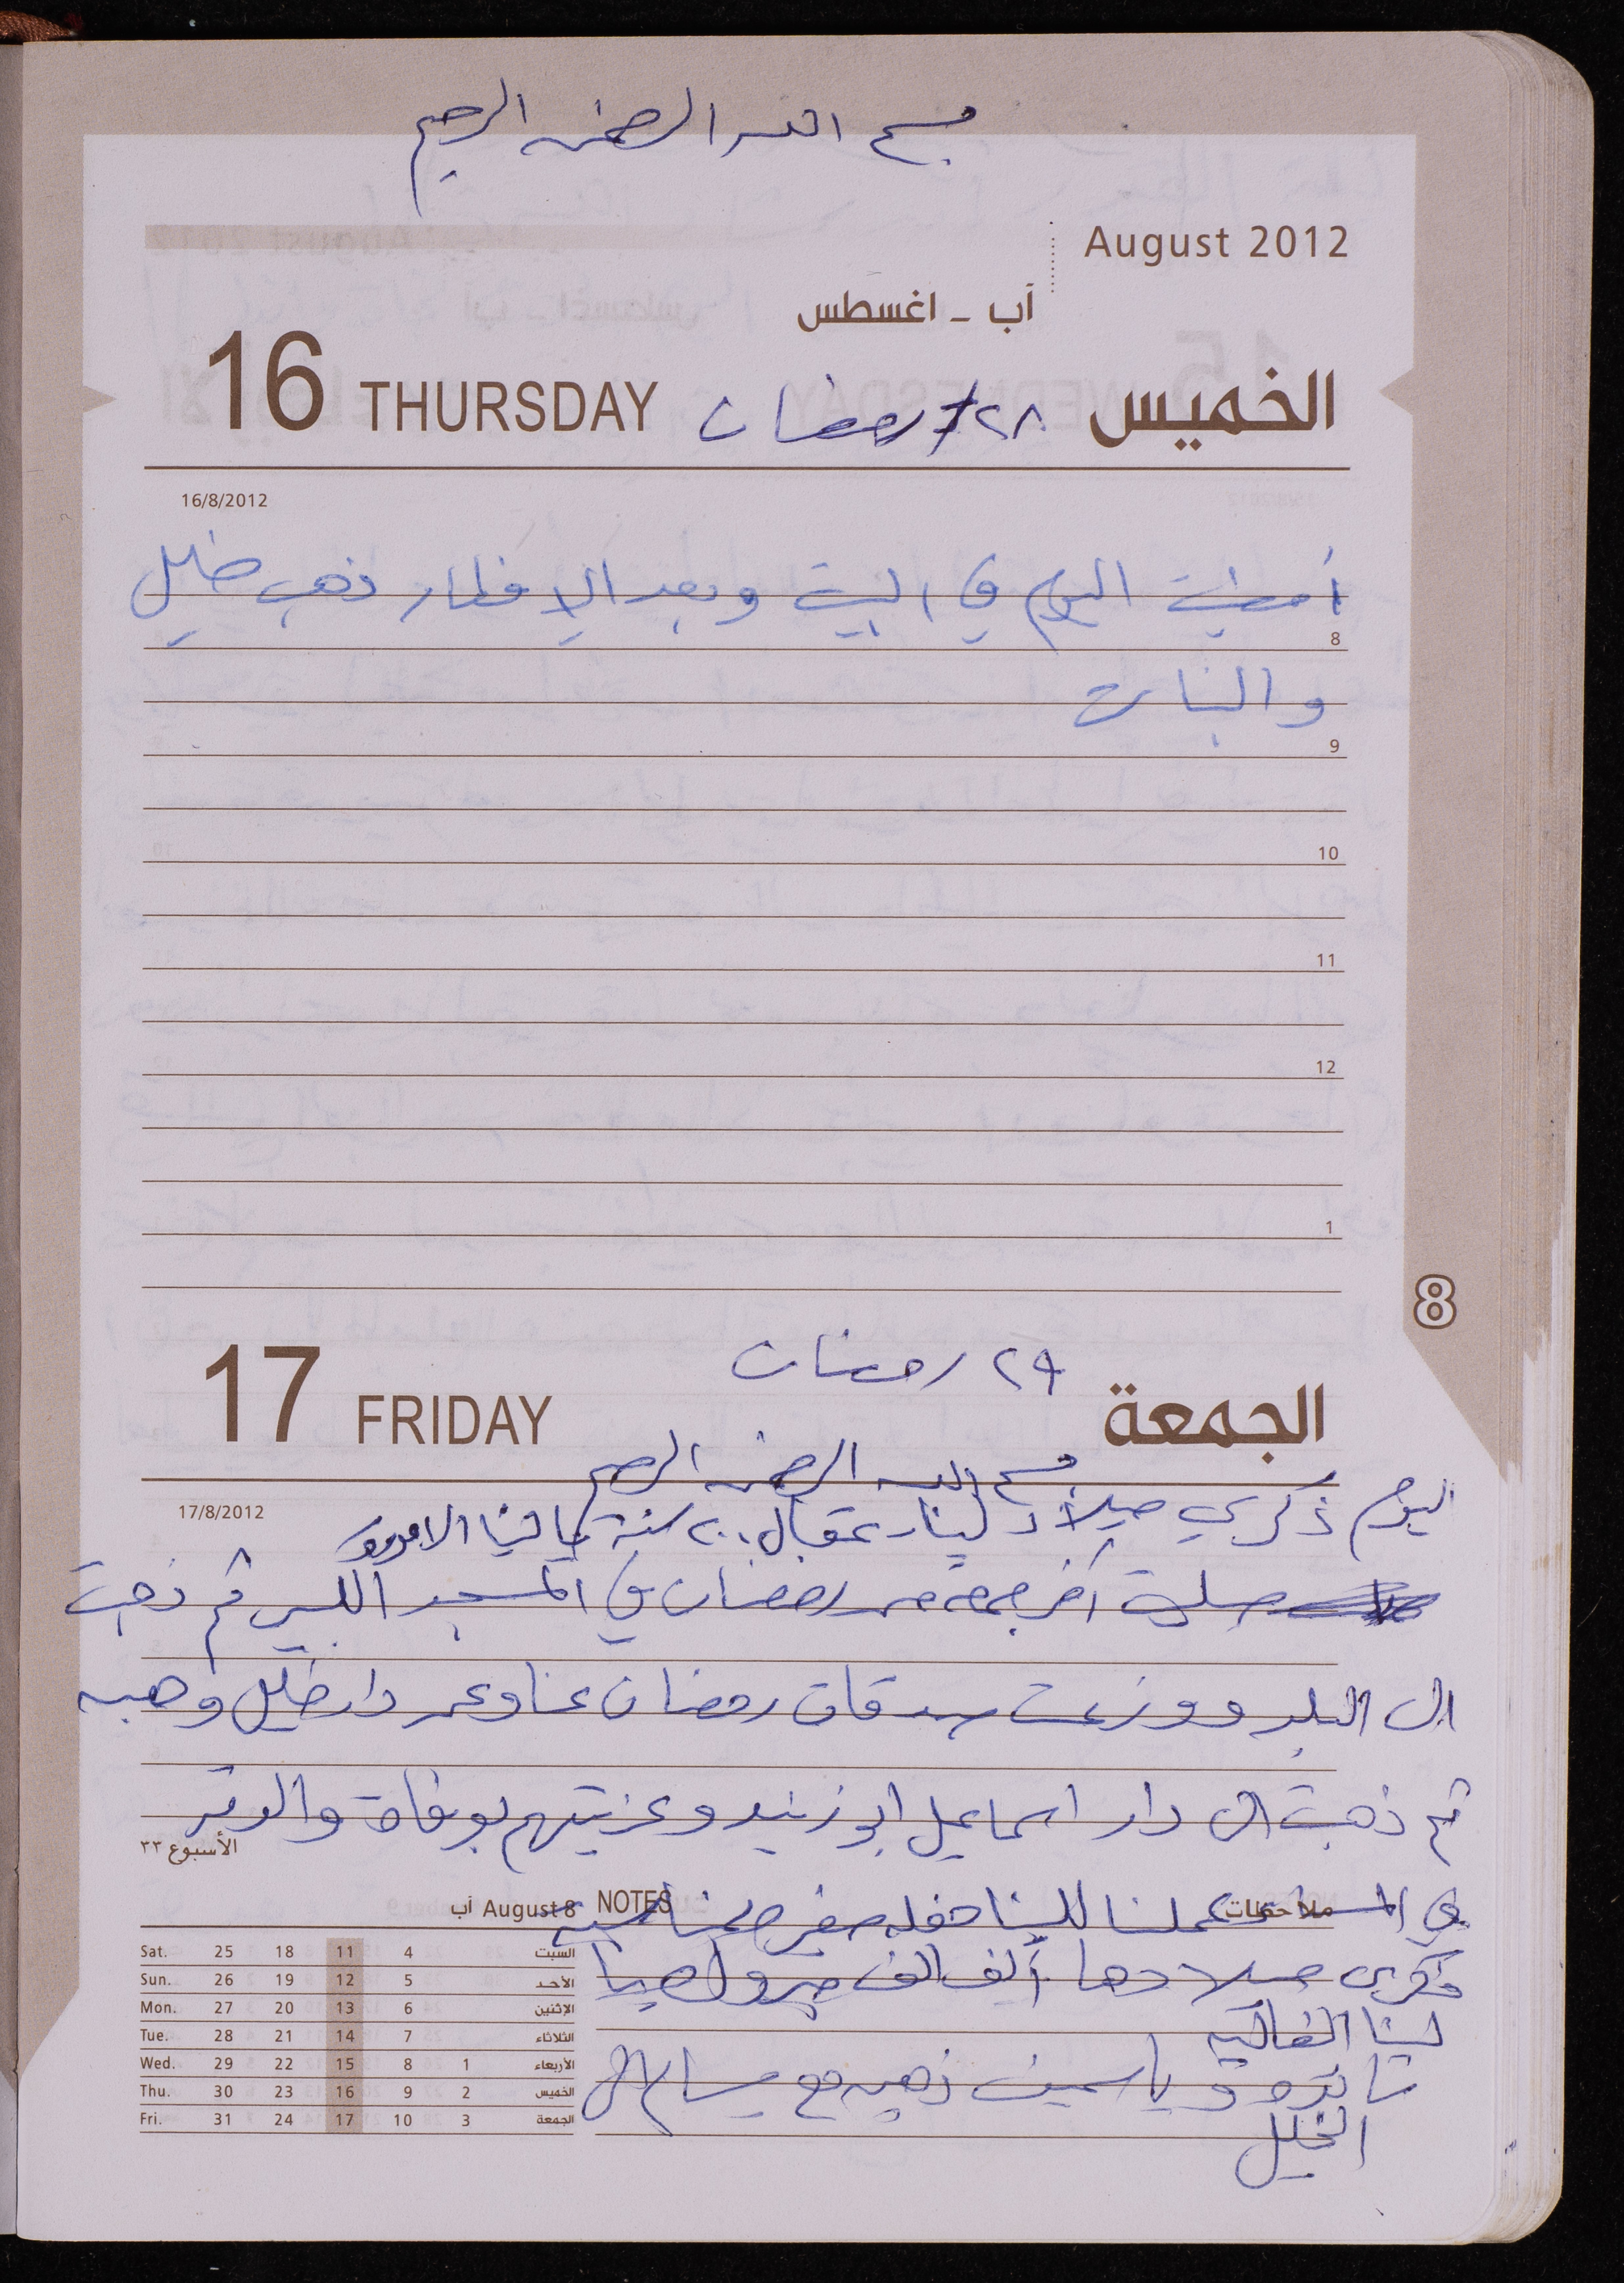 بسم الله الرحمن الرحيم
August 2012
آب - اغسطس
16 THURSDAY ٢٨ رمضان الخميس
16/8/2012
أمضيت اليوم في البيت وبعد الإفطار ذهب خليل
8
والبنات
9
10
11
12
1
8
17 FRIDAY ٢٩ رمضان الجمعة
بسم الله الرحمن الرحيم
17/8/2012
اليوم ذكرى ميلاد لينا عقبال ١٠٠ سنة يا لينا
صليت آخر جمعة من رمضان في المسجد الكبير ثم ذهبت
الى البلد ووزعت صدقات رمضان عنا وعن دار خليل وهبه
ثم ذهبت الى دار اسماعيل ابو زنيد وعزيتهم بوفاة والدته
الأسبوع ٣٣
في المساء عملنا للينا حفله صغيره بمناسبة
ملاحظات NOTES
August 8 آب
ذكرى ميلادها ألف الف مبروك يا
لينا الغاليه
و ياسمين ذهبو مع الى
الخليل
Sat. 25 18 11 4 السبت
Sun. 26 19 12 5 الأحد
Mon. 27 20 13 6 الإثنين
Tue. 28 21 14 7 الثلاثاء
Wed. 29 22 15 8 1 الأربعاء
Thu. 30 23 16 9 2 الخميس
Fri. 31 24 17 10 3 الجمعة